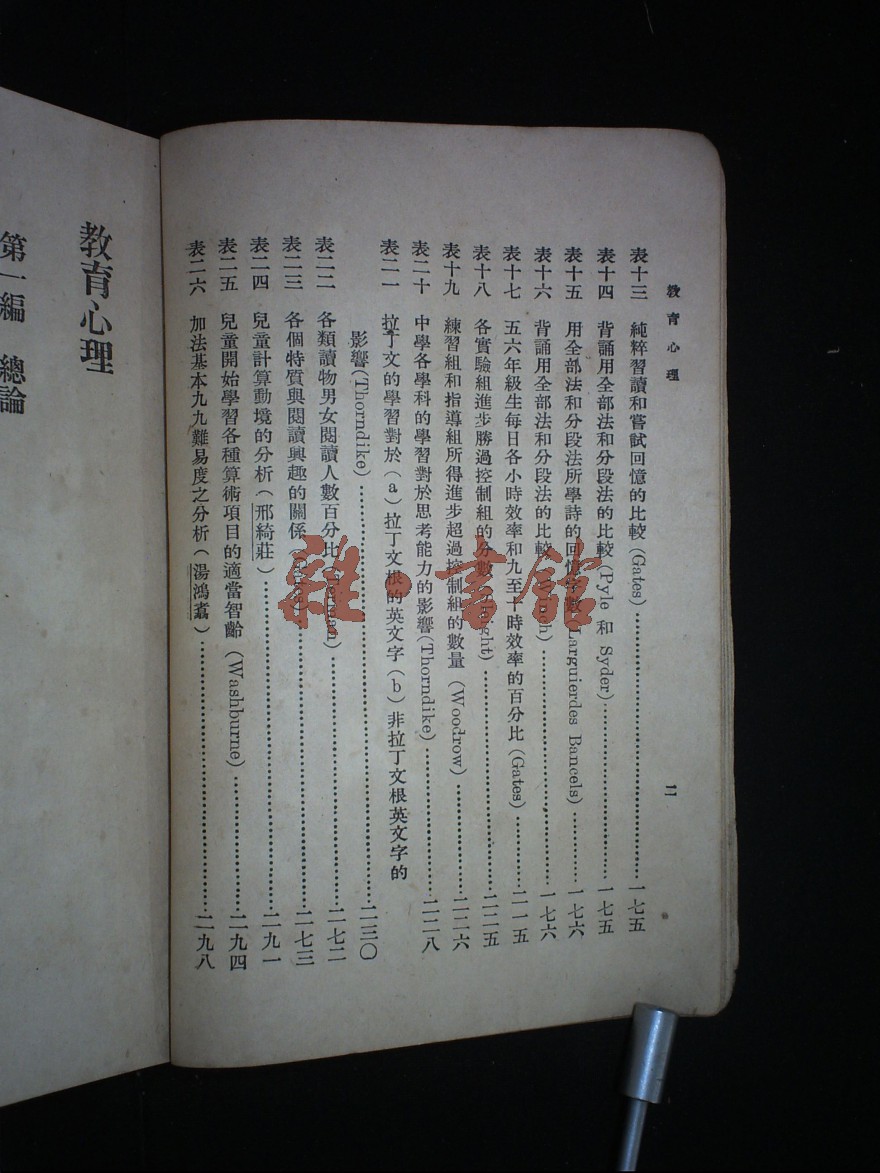 教育心理
二
表十三 純粹習讀和嘗試回憶的比較(Gates)……一七五
表十四 背誦用全部法和分段法的比較(Pyle 和 Syder)……一七五
表十五 用全部法和分段法所學詩的回憶字數(Larguierdes Bancels)……一七六
表十六 背誦用全部法和分段法的比較……一七六
表十七 五六年級生每日各小時效率和九至十時效率的百分比(Gates)……二一五
表十八 各實驗組進步勝過控制組的分數……二二五
表十九 練習組和指導組所得進步超過控制組的數量(Woodrow)……二二六
表二十 中學各學科的學習對於思考能力的影響(Thorndike)……二二八
表二一 拉丁文的學習對於(a)拉丁文根的英文字(b)非拉丁文根英文字的
影響(Thorndike)……二三〇
表二二 各類讀物男女閱讀人數百分比……二七二
表二三 各個特質與閱讀興趣的關係……二七三
表二四 兒童計算動境的分析(邢綺莊)……二九一
表二五 兒童開始學習各種算術項目的適當智齡(Washburne)……二九四
表二六 加法基本九九難易度之分析(湯鴻翥)……二九八
教育心理
第一編 總論
雜·書館